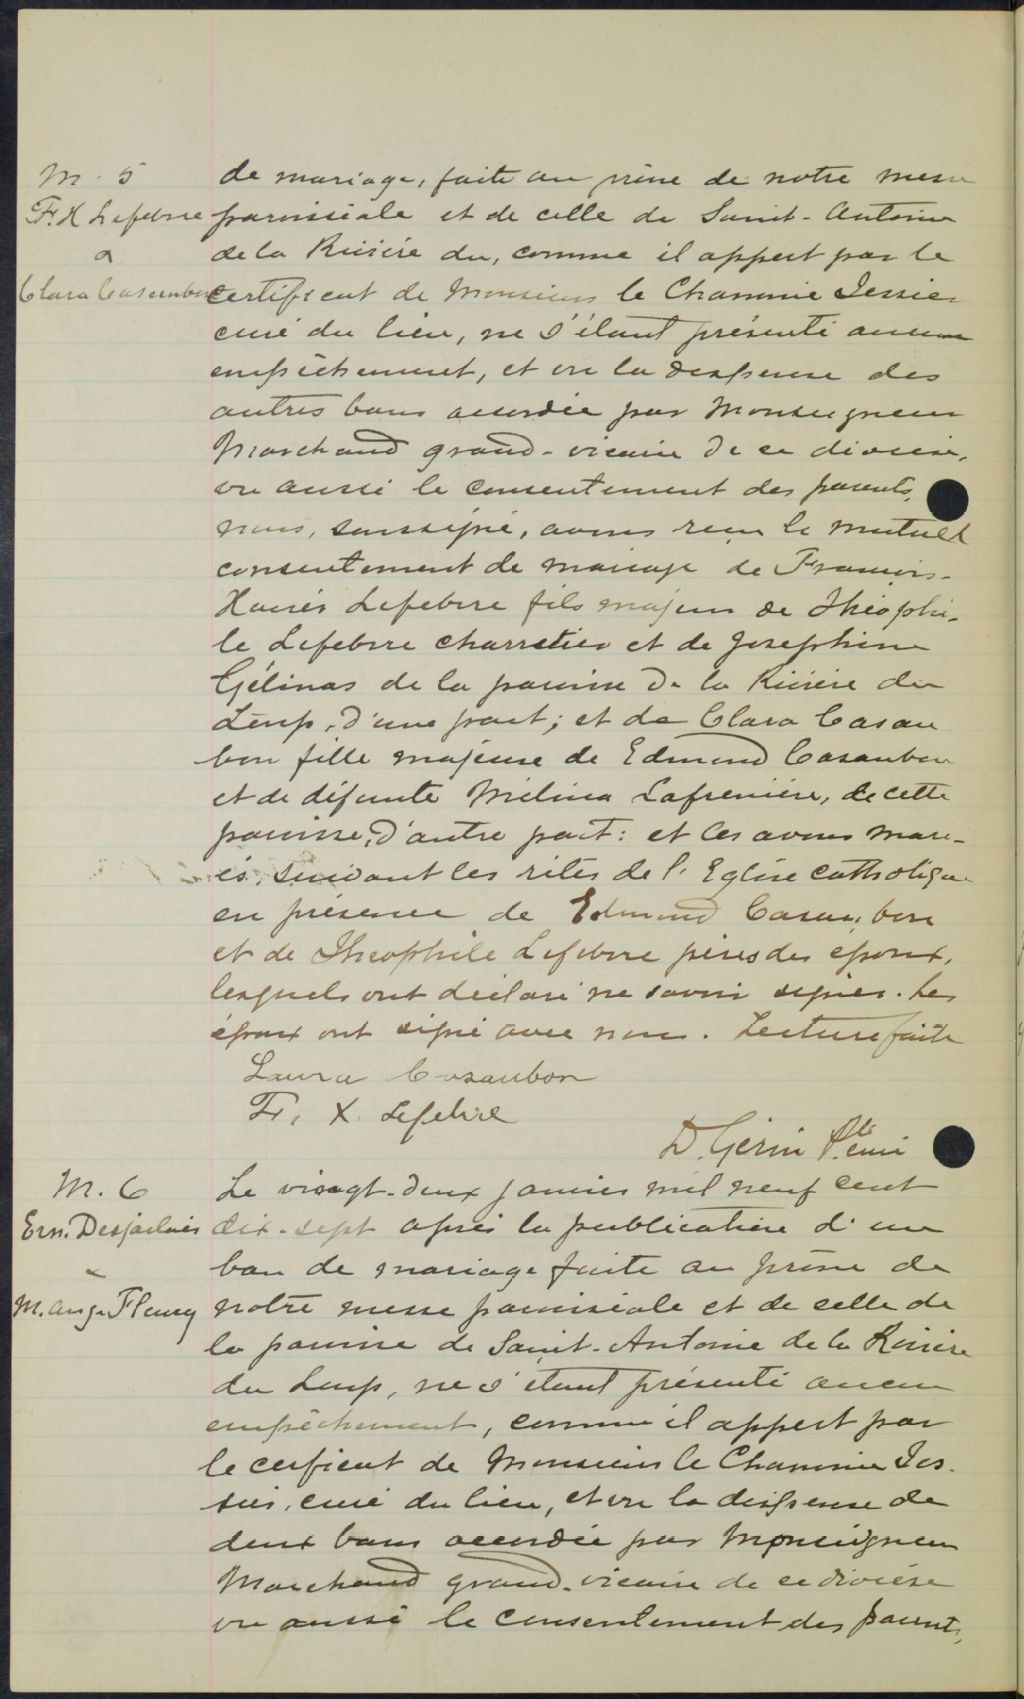 M. 5
F. X Lefebvre
&
Clara Casaubon
de mariage, faite au prône de notre messe
paroissiale et de celle de Saint-Antoine
de la Rivière du, comme il appert par le
certificat de Monsieur le Chanoine Tessier
curé du lieu, ne s'étant présenté aucun
empêchement, et vu la dispense des
autres bans accordée par Monseigneur
Marchand grand-vicaire de ce diocèse,
vu aussi le consentement des parents,
nous, soussigné, avons reçu le mutuel
consentement de mariage de François-
Xavier Lefebvre fils majeur de Théophi-
le Lefebvre charretier et de Josephine
Gélinas de la paroisse de la Rivière du
Loup, d'une part; et de Clara Casau
bon fille majeure de Edmond Casaubon
et de défunte Mélina Lafrenière, de cette
paroisse, d'autre part: et les avons mari-
és, suivant les rites de l'Eglise catholique
en présence de Edmond Casaubon
et de Théophile Lefebvre pères des époux,
lesquels ont déclaré ne savoir signer. Les
époux ont signé avec nous. Lecture faite
Laura Casaubon
Fr. X. Lefebvre
D. Gérin Ptre curé
M. 6
Ern. Desjarlais
&
M. Ange Fleury
Le vingt-deux janvier mil neuf cent
dix-sept après la publication d'un
ban de mariage faite au prône de
notre messe paroissiale et de celle de
la paroisse de Saint-Antoine de la Rivière
du Loup, ne s'étant présenté aucun
empêchement, comme il appert par
le cerficat de Monsieur le Chanoine Tes-
sier, curé du lieu, et vu la dispense de
deux bans accordée par Monseigneur
Marchand grand-vicaire de ce diocèse
vu aussi le consentement des parents,